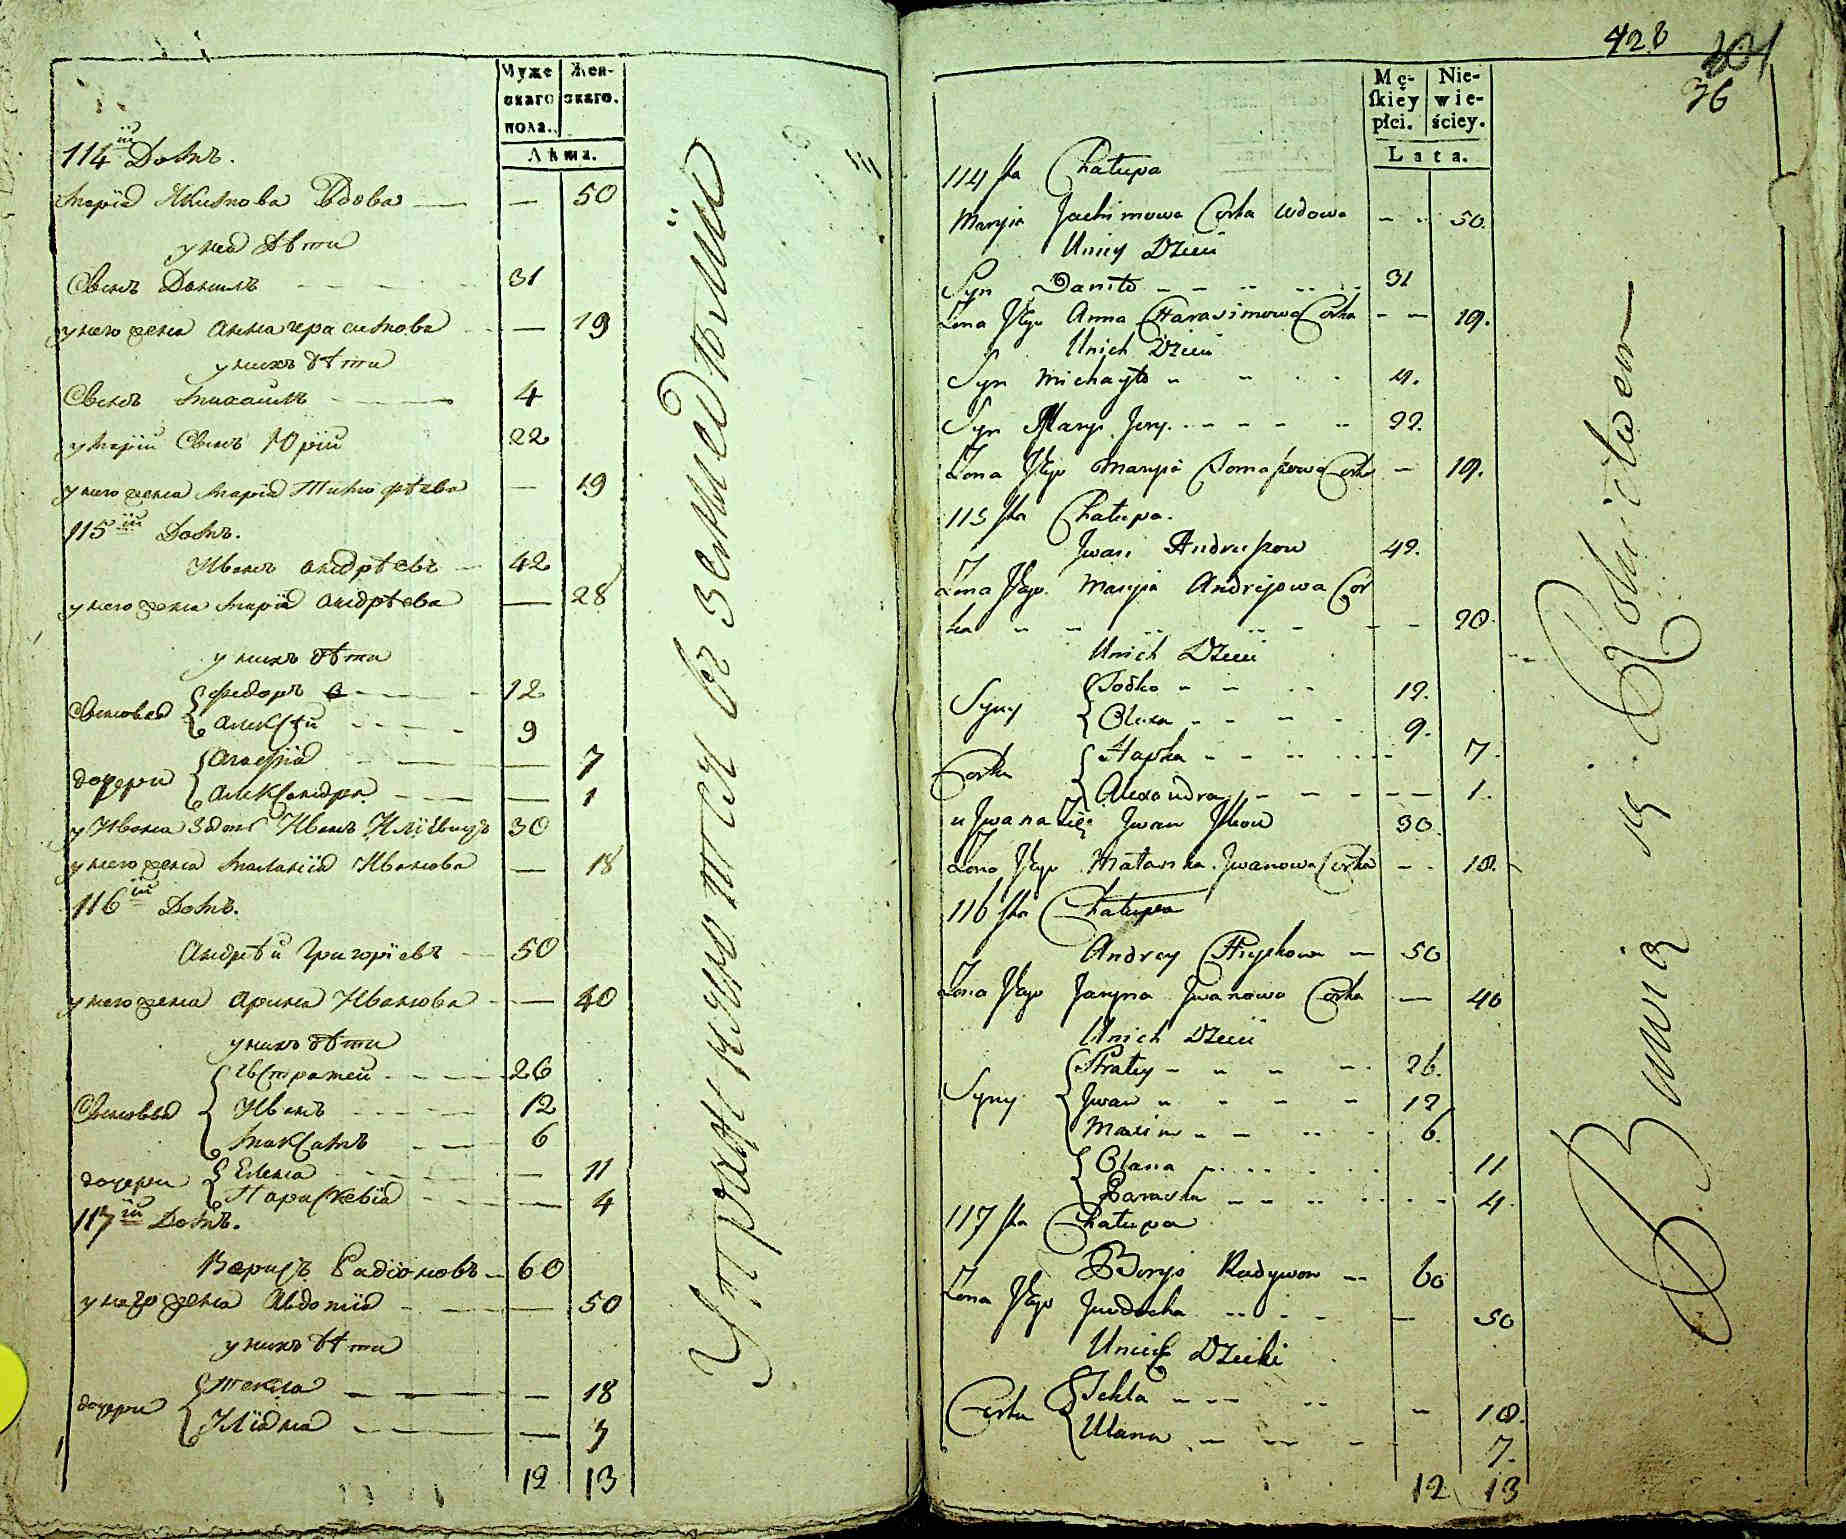 Муже
скаго
пола.
Жен-
скаго.
Лѣта.
114й Домъ.
Марїя Якимова Вдова — — 50
у нея дѣти
Сынъ Данилъ 31
у него жена Анна Герасимова — 19
у нихъ дѣти
Сынъ Михаилъ 4
у Марїи Сынъ Юрїй 22
у него жена Марїя Тимофѣева — 19
115й Домъ.
Иванъ Андрѣевъ — 42
у него жена Марїя Андрѣева — 28
у нихъ дѣти
Сыновья Федоръ 12
Алексѣй 9
дочери Агафїя — 7
Александра — 1
у Ивана Зять Иванъ Илїевичъ 30
у него жена Маланїя Иванова — 18
116й Домъ.
Андрѣй Григорїевъ — 50
у него жена Арина Иванова — 40
у нихъ дѣти
Сыновья Евстратей 26
Иванъ 12
Максимъ 6
дочери Елена — 11
Параскевїя — 4
117й Домъ.
Борисъ Радїоновъ 60
у него жена Авдотїя — 50
у нихъ дѣти
дочери Текла — 18
Улїяна — 7
12 13
Упражняются въ земледѣлїи
428
36
Mę-
ſkiey
płci.
Nie-
wie-
ściey.
Lata.
114 ſta Chałupa
Maryia Jachimowa Corka Wdowa - - 50.
Uniey Dzieci
Syn Daniło 31
Żona Jego Anna Harasimowa Corka - - 19.
Unich Dzieci
Syn Michayło 4.
Syn Maryi Jury 22.
Żona Jego Maryia Tomaszowa Corka - 19.
115 ſta Chałupa.
Jwan Andruszow 42.
Żona Jego Maryia Andrijowa Cor
ka - - 28.
Unich Dzieci
Syny Fedko 12.
Olexa 9.
Corki Hapka 7.
Alexandra 1.
u Jwana Zięć Jwan Jlkow 30.
Żona Jego Małanka Jwanowa Corka - - 18.
116 ſta Chałupa
Andrey Hryckow — 50
Żona Jego Jaryna Jwanowa Corka — 40
Unich Dzieci
Syny Stratey 26.
Jwan 12.
Maxim 6.
Olana 11
Paraska 4.
117 ſta Chałupa
Borys Radywon 60
Żona Jego Jewdocha — 50
Unich Dzieci
Corki Tekla - 18.
Ulana - 7.
12 13
Bawią się Rolnictwem